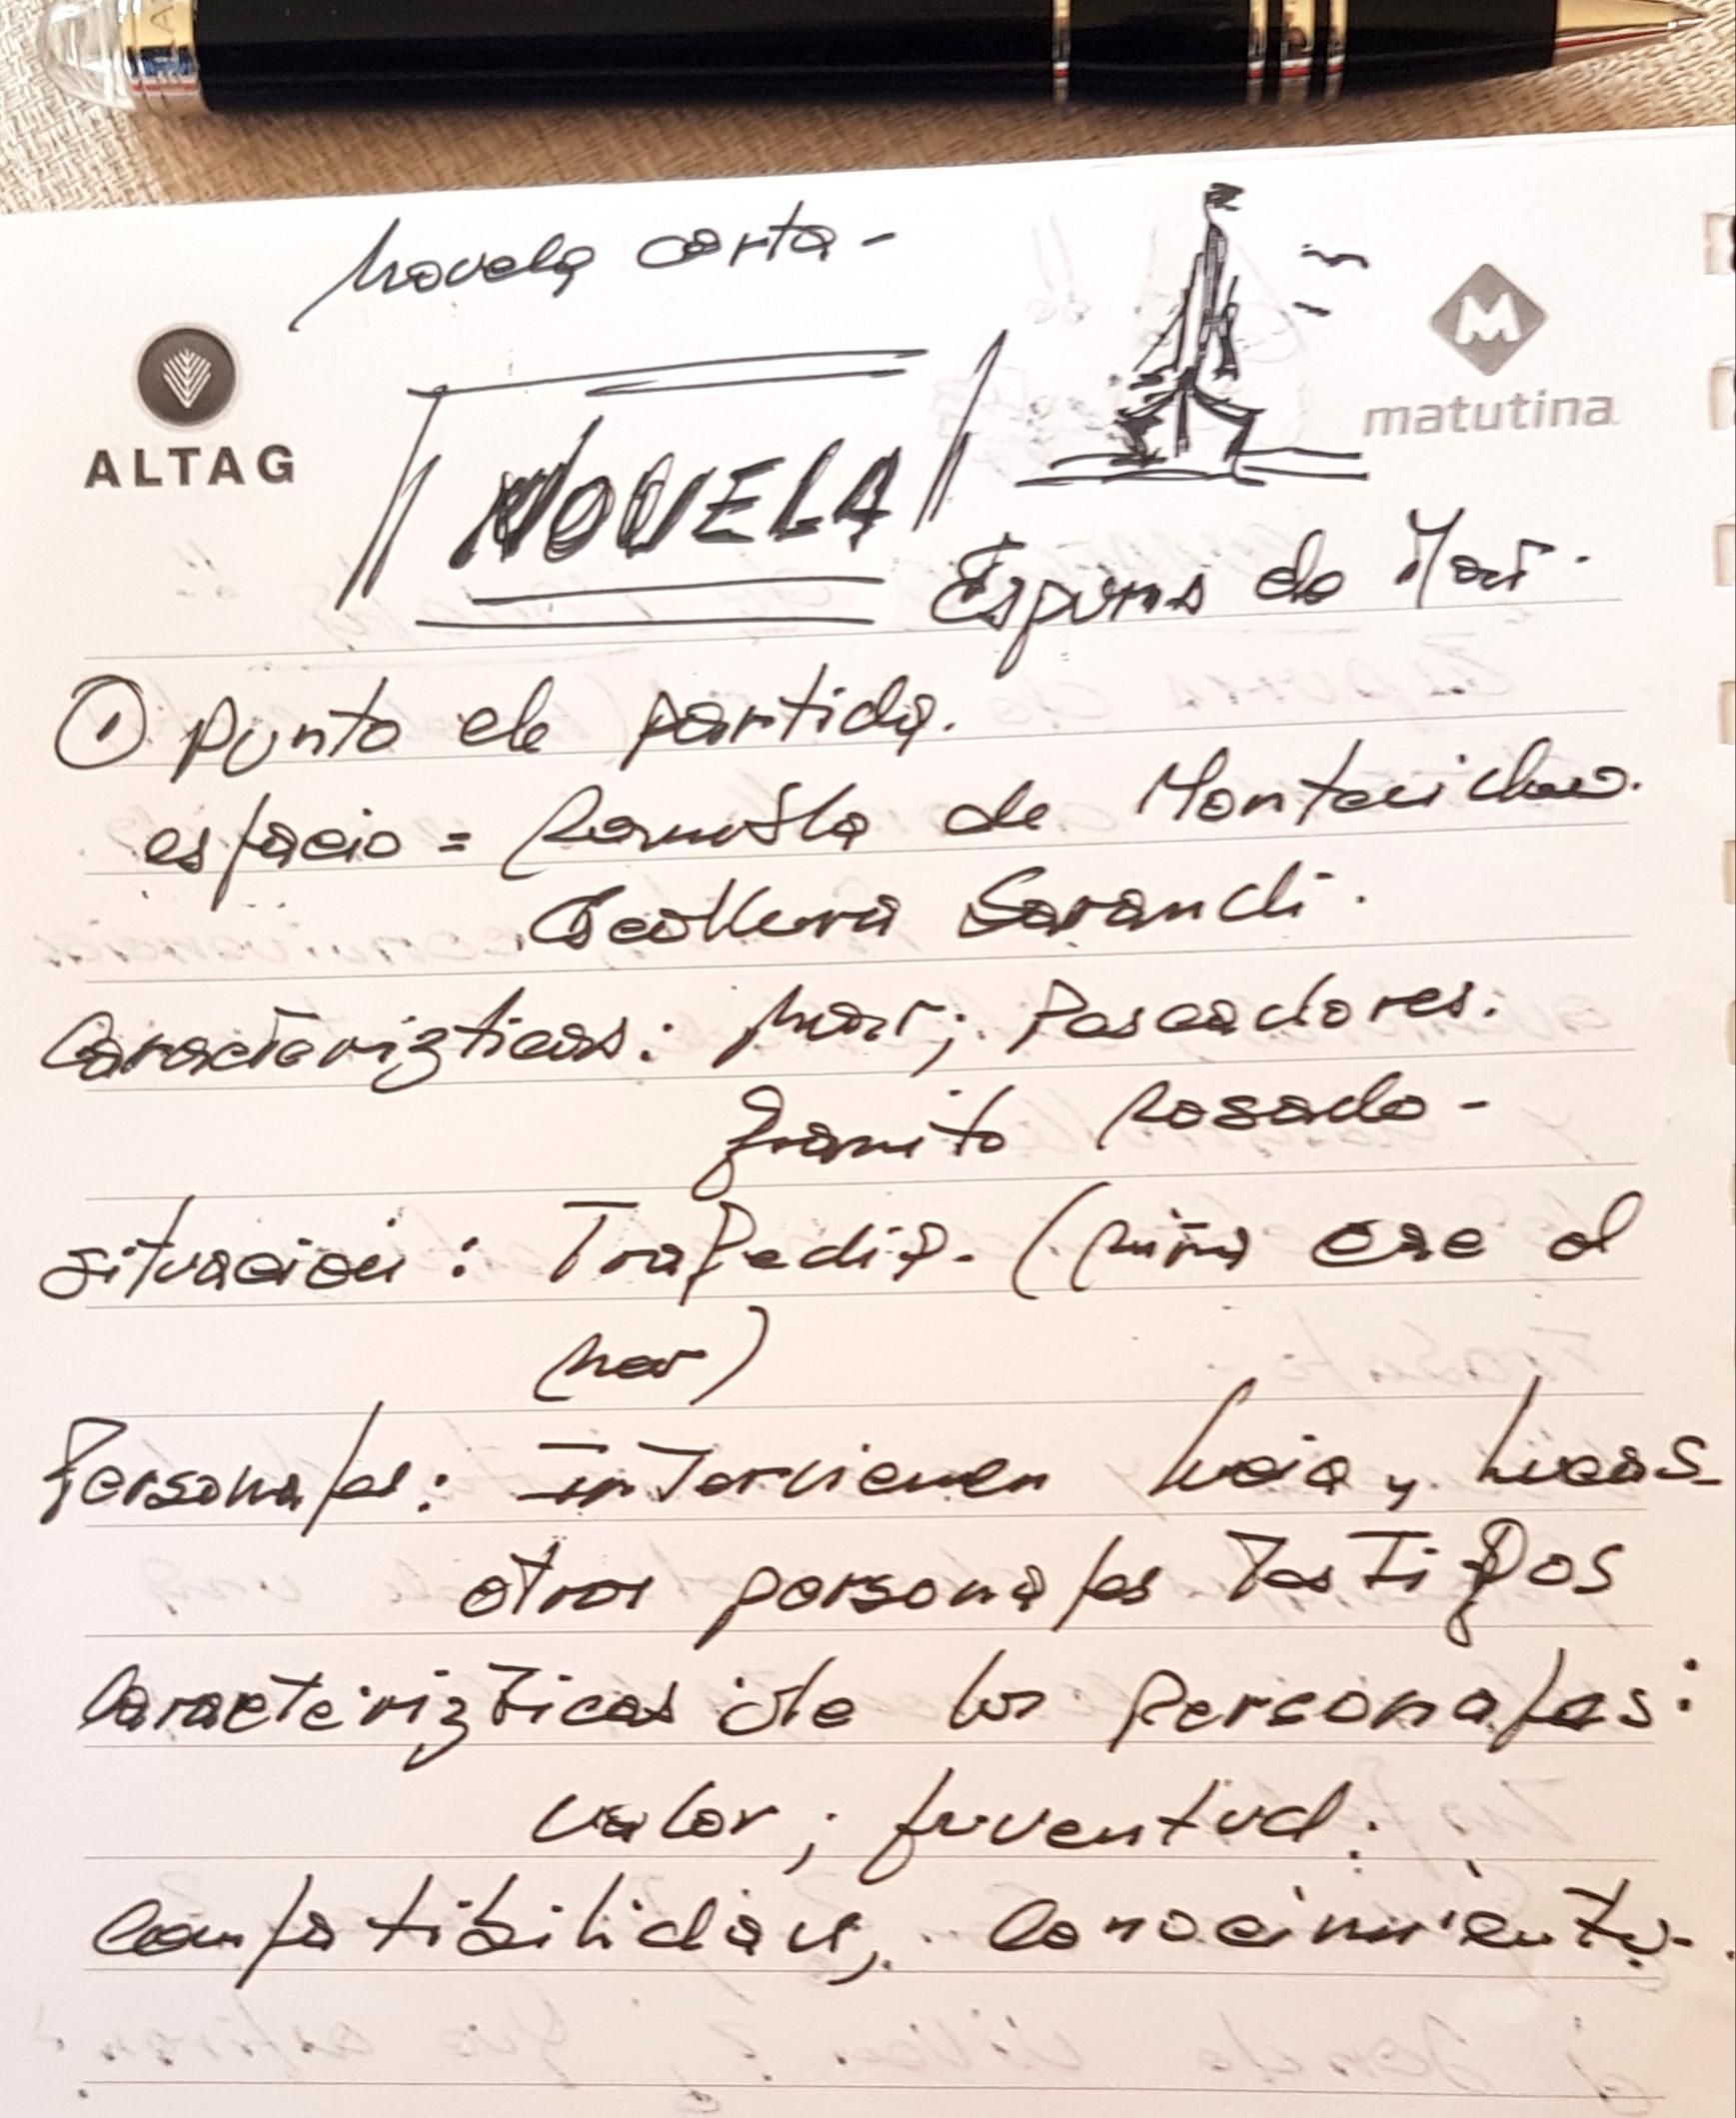 Novela corta -
M
matutina
ALTAG
NOVELA
Espuma de Mar.
① Punto de partida.
espacio = Rambla de Montevideo.
Escollera Sarandi.
Caracterizticas: Mar; Pescadores.
Granito Rosado -
situación: Tragedia. (niña cae al
mar)
Personajes: intervienen Lucia y Lucas_
otros personajes testigos
Caracterizticas de los Personajes:
valor; juventud;
compatibilidad; conocimiento.